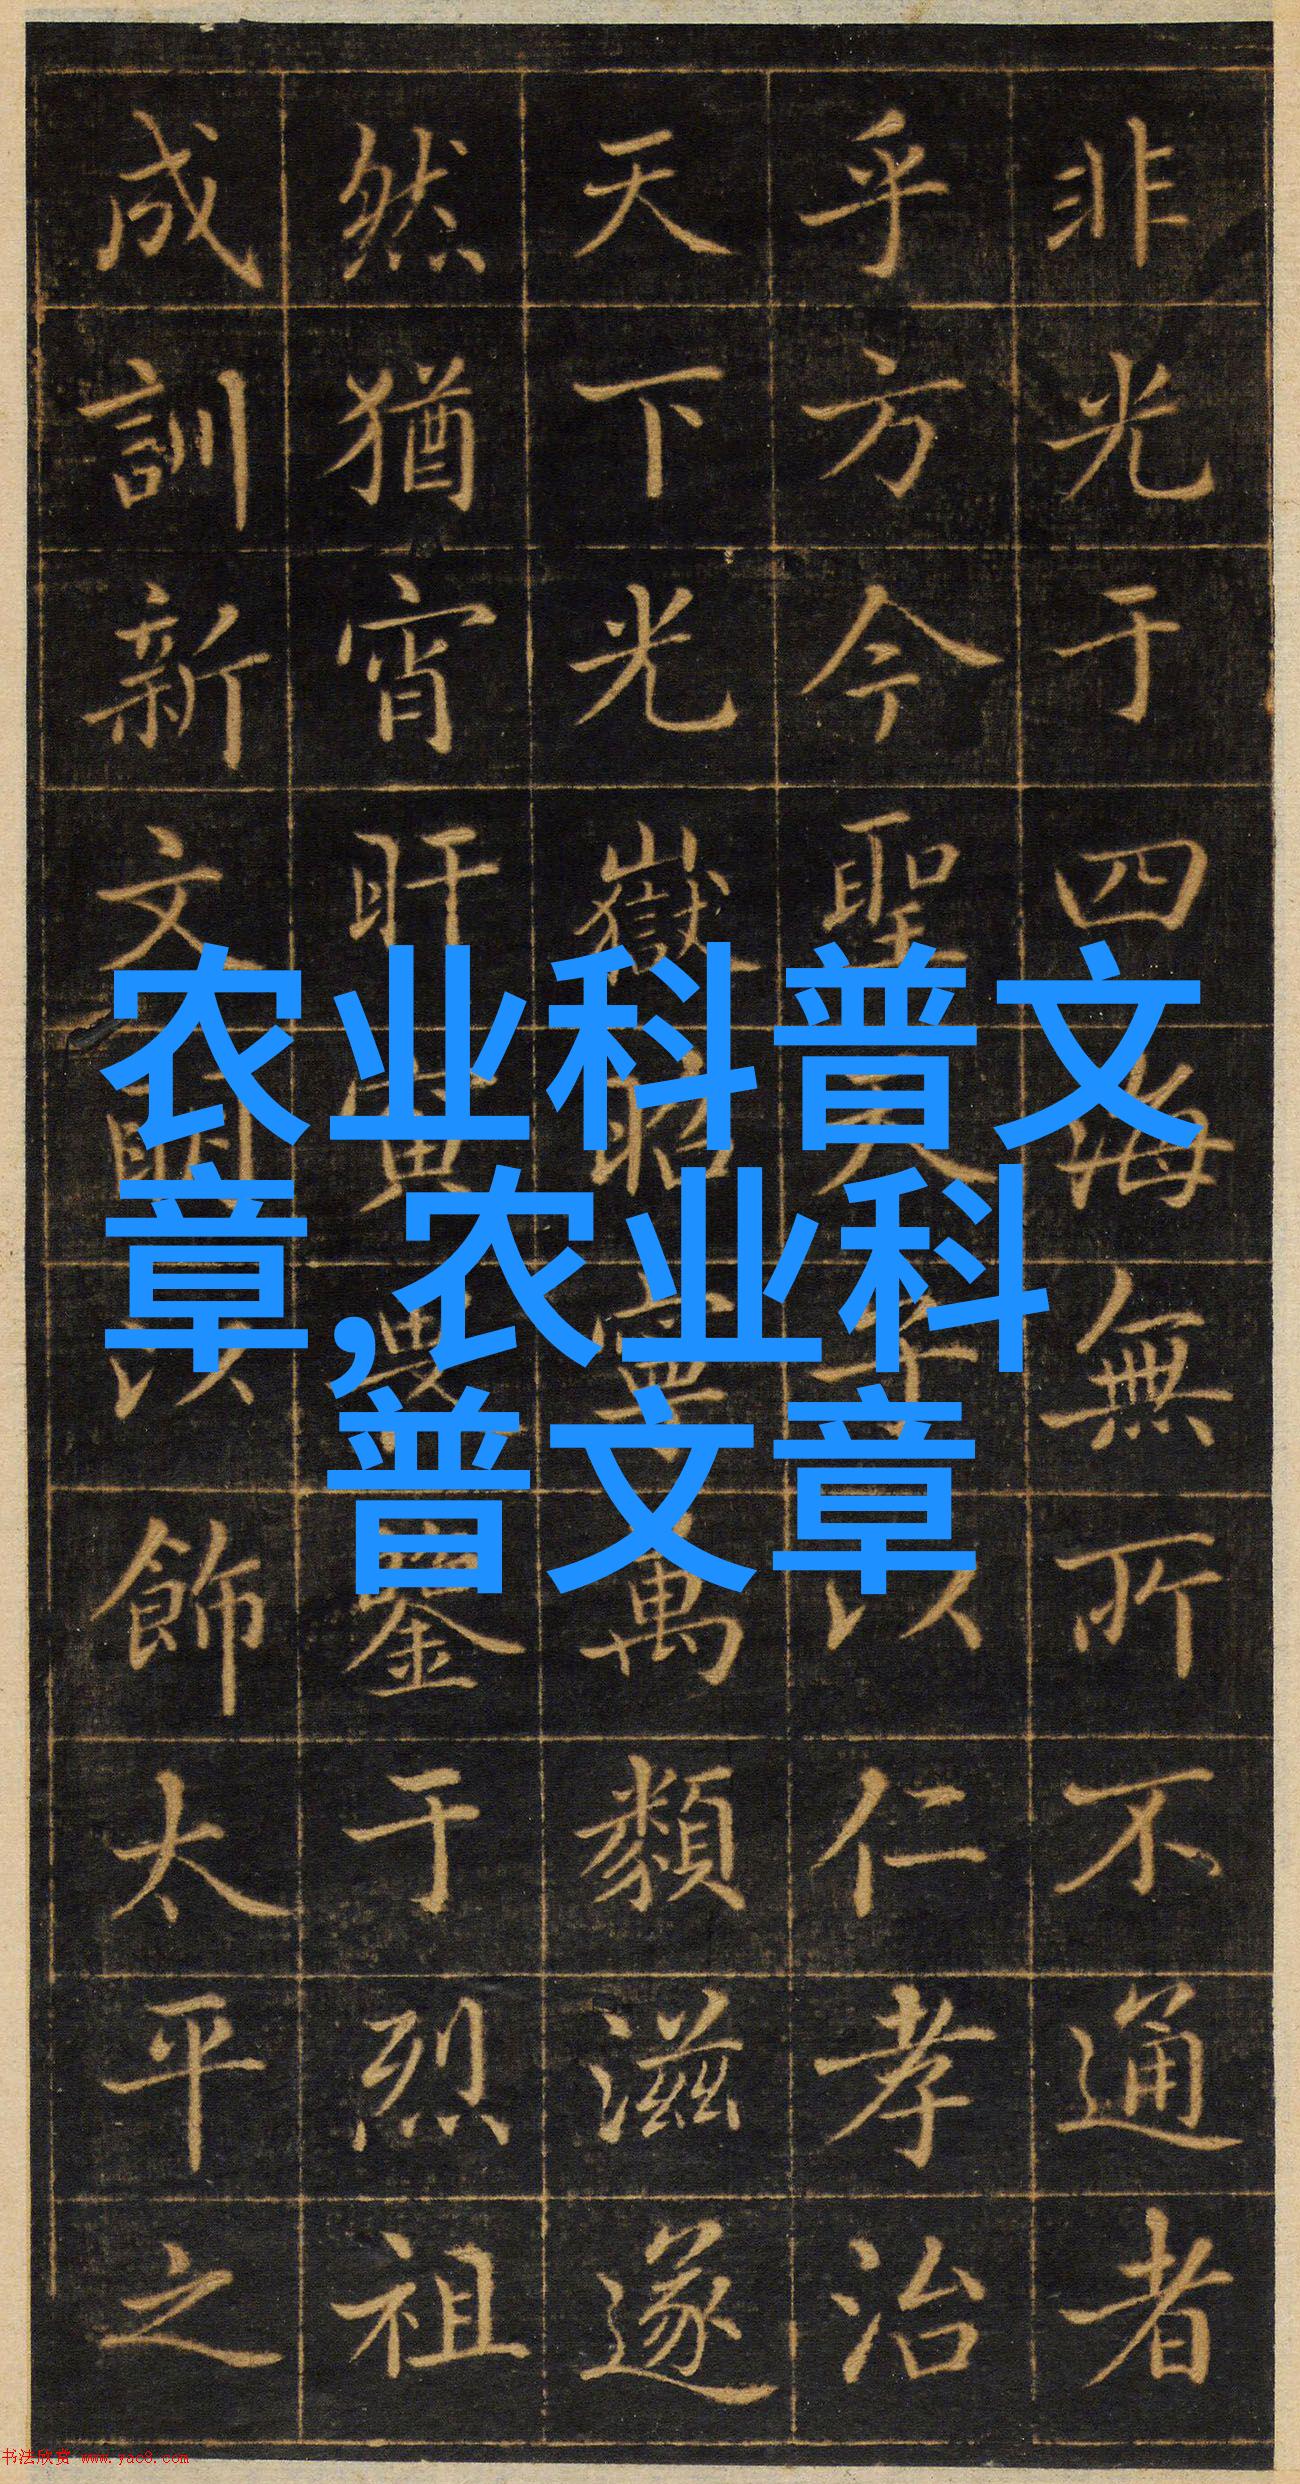 非光于四海無所不通者
乎方今聖天子以仁孝治
天下光嶽昭寧萬類滋遂
然猶宵旰寅畏鑒于烈祖
成訓新文以飾太平之
农业科普文
章,农业科
普文章
书法欣赏 www.yac8.com